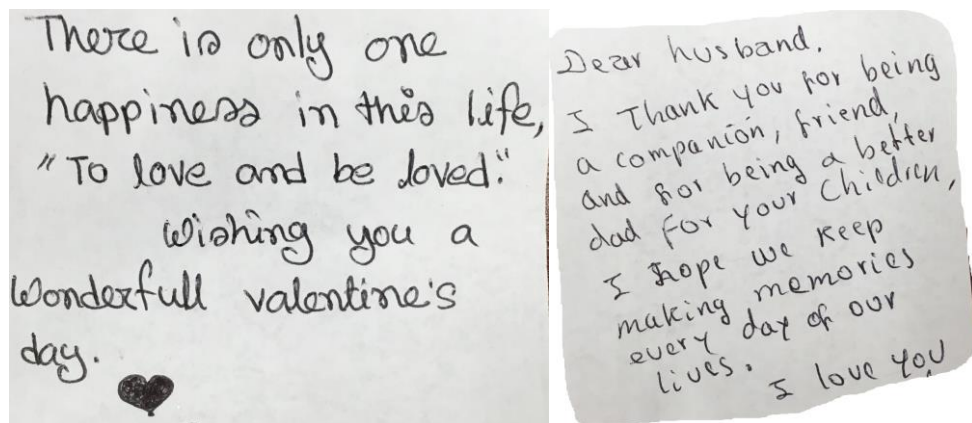 There is only one
happiness in this life,
"To love and be loved."
Wishing you a
Wonderfull valentine's
day.
Dear husband.
I Thank you for being
a companion, friend,
and for being a better
dad for your Children,
I hope we keep
making memories
every day of our
lives.
I love you